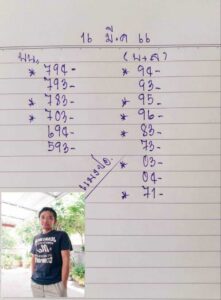 16 มี.ค 66
บน. (บ+ล)
* 794- * 94-
793- 93-
* 783- * 95-
* 703- * 96-
694- * 83-
593- 73-
* 03-
04-
* 71-